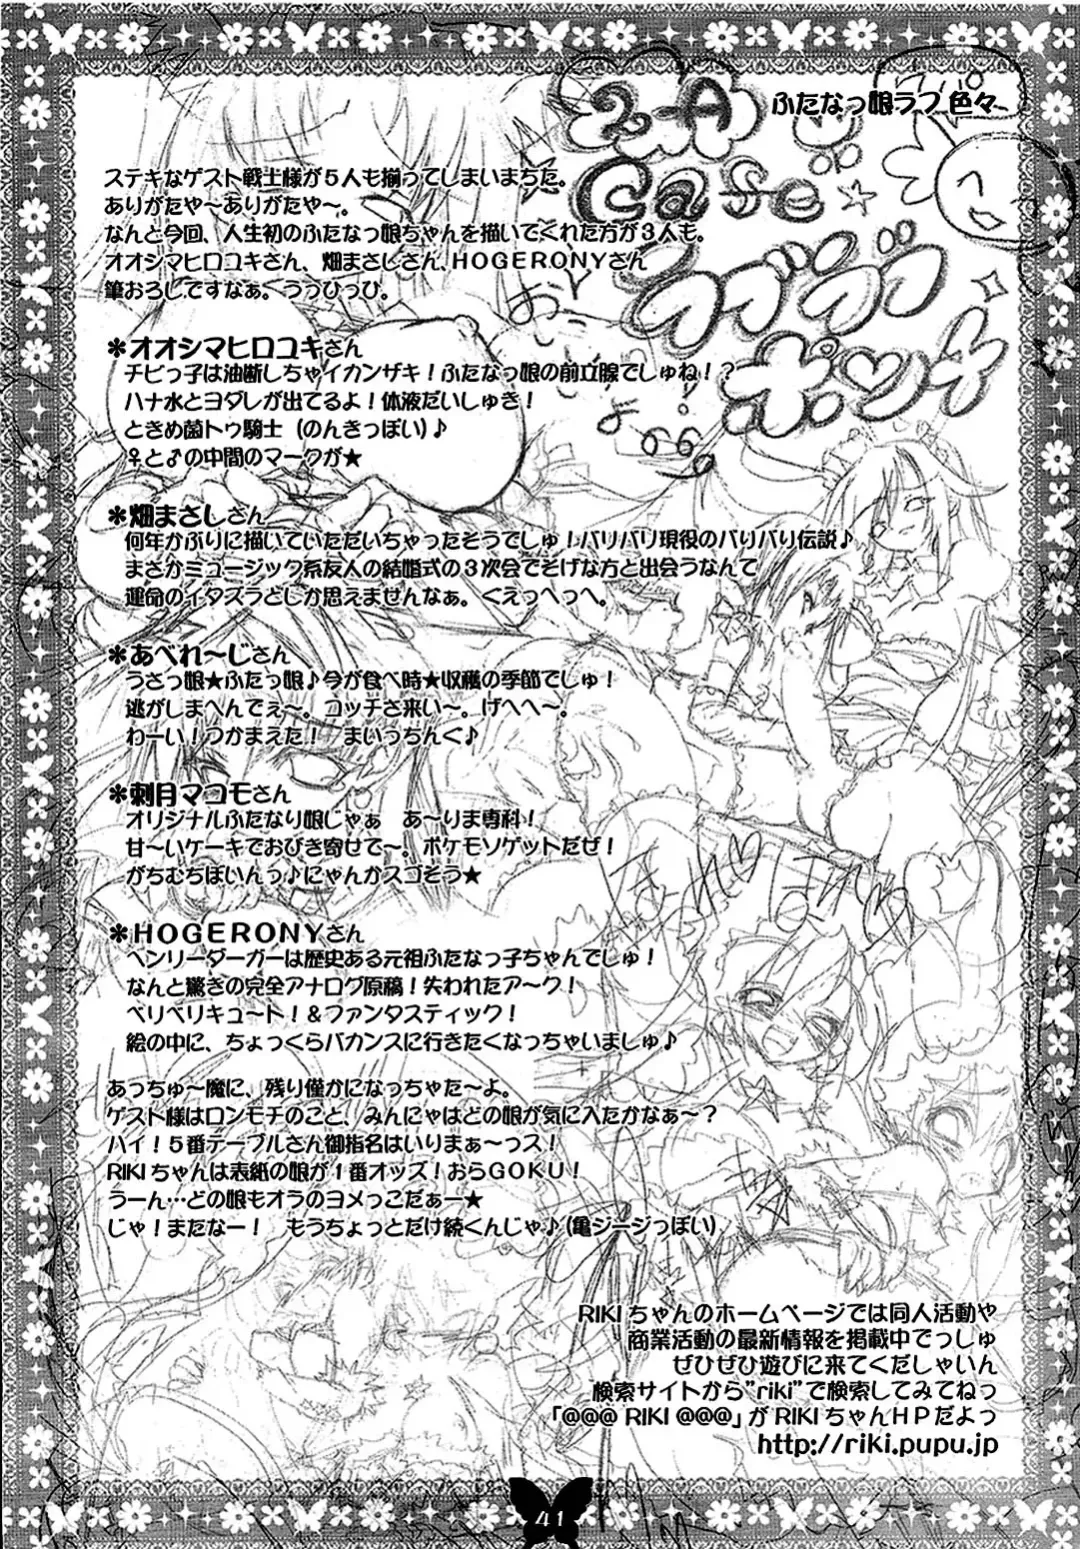 ふたなっ娘ラフ 色々
2-A
Case
ラブラブ
ポッチ
ステキなゲスト戦士様が５人も揃ってしまいまちた。
ありがたや～ありがたや～。
なんと今回、人生初のふたなっ娘ちゃんを描いてくれた方が３人も。
オオシマヒロユキさん、畑まさしさん、HOGERONYさん
筆おろしですなぁ。うっひっひ。
＊オオシマヒロユキさん
チビっ子は油断しちゃイカンザキ！ふたなっ娘の前立腺でしゅね！？
ハナ水とヨダレが出てるよ！体液だいしゅき！
ときめ菌トゥ騎士（のんきっぽい）♪
♀と♂の中間のマークが★
＊畑まさしさん
何年かぶりに描いていただいちゃったそうでしゅ！バリバリ現役のバリバリ伝説♪
まさかミュージック系友人の結婚式の３次会でそげな方と出会うなんて
運命のイタズラとしか思えませんなぁ。くえっへっへ。
＊あべれ～じさん
うさっ娘★ふたっ娘♪今が食べ時★収穫の季節でしゅ！
逃がしまへんでぇ～。コッチさ来い～。げへへ～。
わーい！つかまえた！　まいうちんぐ♪
＊刺月マコモさん
オリジナルふたなり娘じゃぁ　あ～りま専科！
甘～いケーキでおびき寄せて～。ポケモソゲットだぜ！
がちむちぼいんっ♪にゃんかスゴそう★
＊HOGERONYさん
ヘンリーダーガーは歴史ある元祖ふたなっ子ちゃんでしゅ！
なんと驚きの完全アナログ原稿！失われたアーク！
ベリベリキュート！＆ファンタスティック！
絵の中に、ちょっくらバカンスに行きたくなっちゃいましゅ♪
あっちゅ～魔に、残り僅かになっちゃた～よ。
ゲスト様はロンモチのこと、みんにゃはどの娘が気に入たかなぁ～？
ハイ！５番テーブルさん御指名はいりまぁ～っス！
RIKIちゃんは表紙の娘が１番オッズ！おらGOKU！
うーん…どの娘もオラのヨメっこだぁー★
じゃ！またなー！　もうちょっとだけ続くんじゃ♪（亀ジージっぽい）
RIKIちゃんのホームページでは同人活動や
商業活動の最新情報を掲載中でっしゅ
ぜひぜひ遊びに来てくだしゃいん
検索サイトから"riki"で検索してみてねっ
「@@@ RIKI @@@」がRIKIちゃんHPだよっ
http://riki.pupu.jp
41